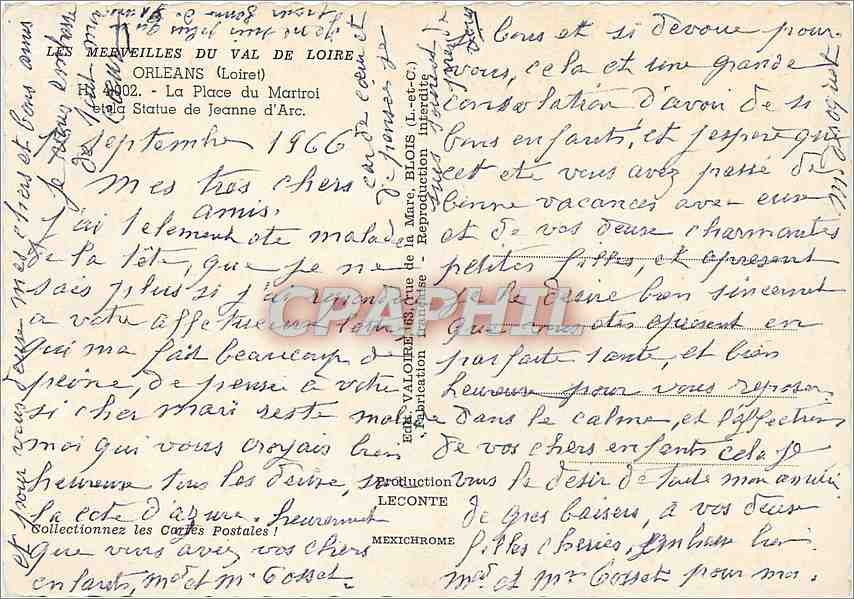 LES MERVEILLES DU VAL DE LOIRE
ORLEANS (Loiret)
H. 4002. - La Place du Martroi
et la Statue de Jeanne d'Arc.
septembre 1966
Mes tres chers
amis.
J'ai telement ote malade
de la tête, que je ne
sais plus si j'ai
a votre affectueuse
qui ma fait beaucoup de
peine, de pensé a votre
si cher mari reste malade
moi qui vous croyais bien
heureuse tous les deuse,
la cote d'azure. heureusement
que vous avez vos chers
enfants, Md et Mr Cosset
si bons et si devoue pour
vous, cela et une grande
consolation d'avoir de si
bons enfants, et j'espere que
cet eté vous avez passé de
bonne vacances avec euse
et de vos deuse charmantes
petites filles, et apresent
je le desire bon
que vous etes apresent en
parfaite sante, et bien
heureuse pour vous reposer
dans le calme, et l'affection
de vos chers enfants cela je
vous le desir de toute mon amitié
de gros baisers, a vos deuse
filles cheries,
Md et Mr Cosset pour moi.
et pour vous deuse mes chers et bons amis
je vous
de tout mon
car de cœur et
de pensé je
suis toujours
de vous
Edit. VALOIRE, 63, rue de la Mare, BLOIS (L.-et-C.)
Fabrication française - Reproduction Interdite
CPAPHIL
Production
LECONTE
MEXICHROME
Collectionnez les Cartes Postales !